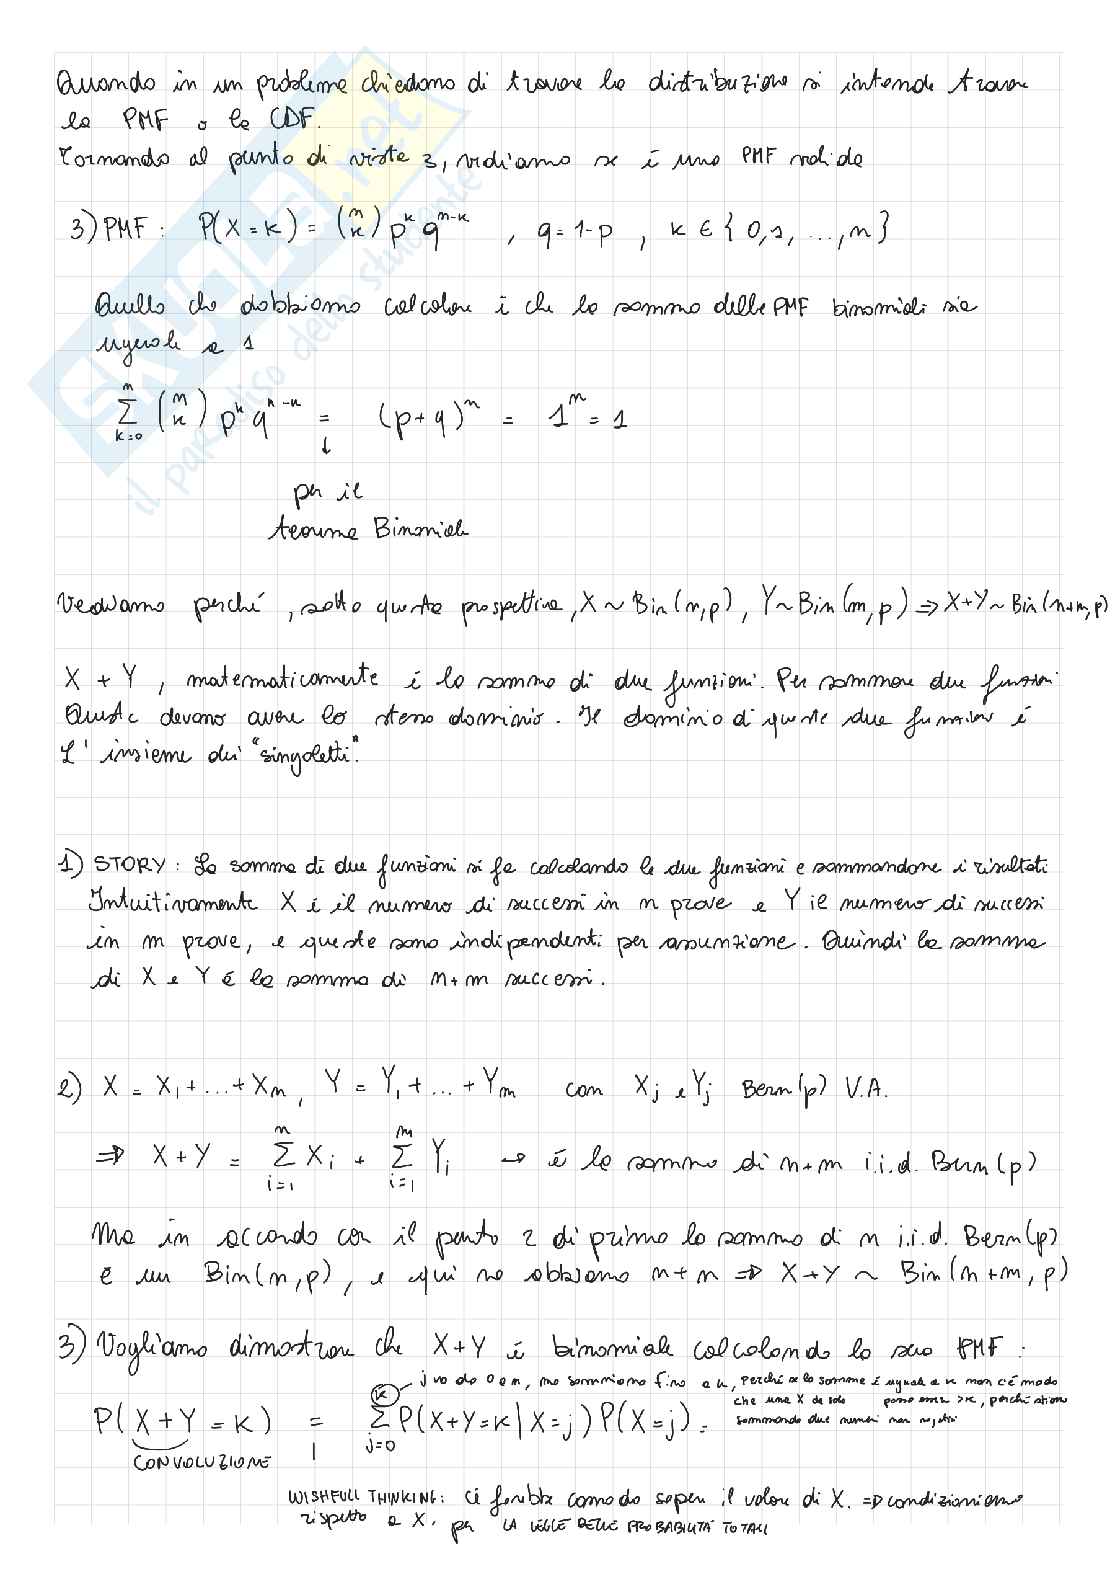 Quando in un problema chiedono di trovare la distribuzione si intende trovare
la PMF o la CDF.
Tornando al punto di vista 3, vediamo se è una PMF valida
3) PMF: P(X=k) = (n k) p^k q^{n-k} , q=1-p , k ∈ {0,1,...,n}
Quello che dobbiamo calcolare è che la somma delle PMF binomiali sia
uguale a 1
∑_{k=0}^{n} (n k) p^k q^{n-k} = (p+q)^n = 1^n = 1
↓
per il
teorema Binomiale
Vediamo perché, sotto questa prospettiva, X ~ Bin(n,p), Y ~ Bin(m,p) ⇒ X+Y ~ Bin(n+m,p)
X + Y, matematicamente è la somma di due funzioni. Per sommare due funzioni
Queste devono avere lo stesso dominio. Il dominio di queste due funzioni è
L'insieme dei "singoletti".
1) STORY: La somma di due funzioni si fa calcolando le due funzioni e sommandone i risultati
Intuitivamente X è il numero di successi in n prove e Y il numero di successi
in m prove, e queste sono indipendenti per assunzione. Quindi la somma
di X e Y é la somma di n+m successi.
2) X = X₁+...+Xₙ, Y = Y₁+...+Yₘ con Xⱼ e Yⱼ Bern(p) V.A.
⇒ X+Y = ∑_{i=1}^{n} Xᵢ + ∑_{i=1}^{m} Yᵢ → é la somma di n+m i.i.d. Bern(p)
Ma in accordo con il punto 2 di prima la somma di n i.i.d. Bern(p)
è un Bin(n,p), e qui ne abbiamo n+m ⇒ X+Y ~ Bin(n+m,p)
3) Vogliamo dimostrare che X+Y è binomiale calcolando la sua PMF:
j va da 0 a n, ma sommiamo fino a k, perché se la somma è uguale a k non c'é modo
che una X da sola possa esser >k, perché stiamo
sommando due numeri non negativi
P(X+Y=k) = ∑_{j=0}^{k} P(X+Y=k|X=j) P(X=j) =
CONVOLUZIONE
WISHFULL THINKING: ci farebbe comodo sapere il valore di X. ⇒ condizioniamo
rispetto a X, per LA LEGGE DELLE PROBABILITÀ TOTALI
SKUOLA.net
il paradiso dello studente